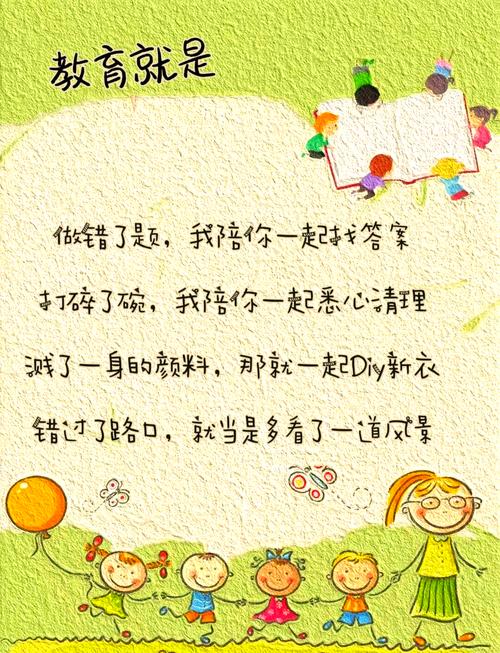 教育就是
做错了题，我陪你一起找答案
打碎了碗，我陪你一起悉心清理
溅了一身的颜料，那就一起Diy新衣
错过了路口，就当是多看了一道风景